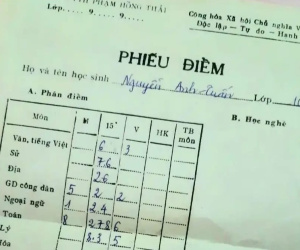 PHẠM HỒNG THÁI
Lớp. . 9. . 9. .
Cộng hòa Xã hội Chủ nghĩa V
Độc lập - Tự do - Hạnh
PHIẾU ĐIỂM
Họ và tên học sinh Nguyễn Anh Tuấn Lớp
A. Phần điểm
B. Học nghề
Môn M 15' V HK TB môn
Văn, tiếng Việt 6 3
Sử 76
Địa 26
GD công dân 5 2 2
Ngoại ngữ 1 2.4
Toán 8 2786
Lý 8.3 5
Hóa